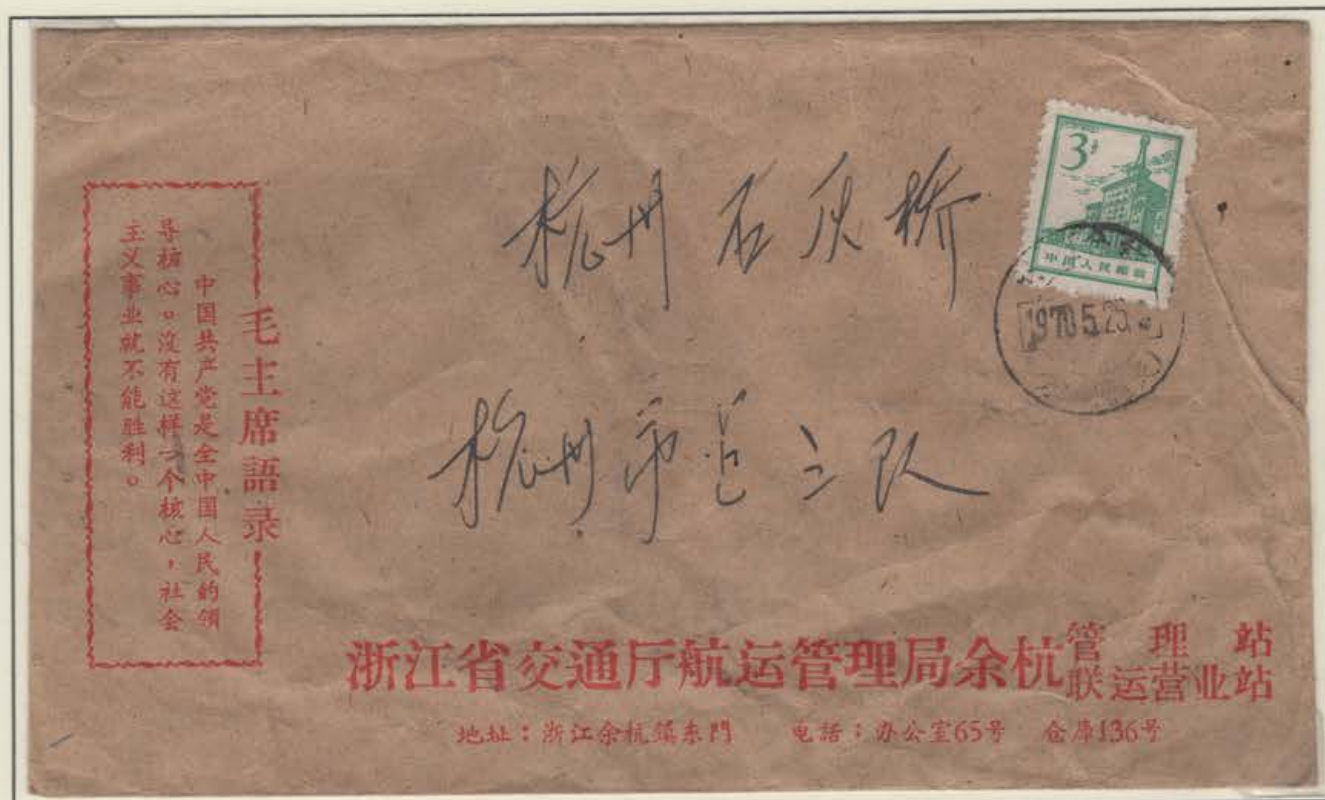 毛主席語录
中国共产党是全中国人民的領
导核心。没有这样一个核心，社会
主义事业就不能胜利。
杭州石灰桥
杭州市
三队
3分
中国人民邮政
1970.5.25.
浙江省交通厅航运管理局余杭
管理站
联运营业站
地址：浙江余杭鎮东門 电話：办公室65号 仓库136号